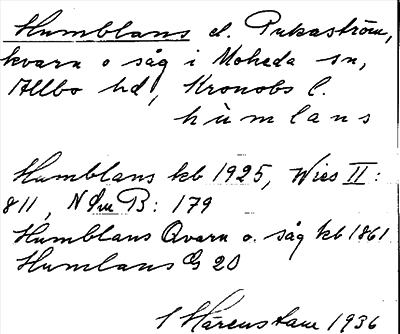 Humblans el. Pukaström,
kvarn o såg i Moheda sn,
Allbo hd, Kronobs l.
hùmlans
Humblans kb 1925, Wies II:
811, N Sm B: 179
Humblans Qvarn o. såg kb 1861
Humlans G 20
1936